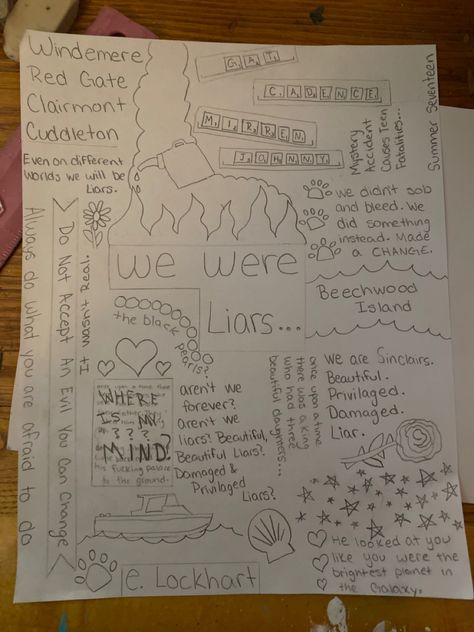 Windemere
Red Gate
Clairmont
Cuddleton
Even on different
worlds we will be
Liars.
GAT
CADENCE
MIRREN
JOHNNY
Mystery
Accident
Causes Teen
Fatalities...
Summer Seventeen
we didn't sob
and bleed. We
did something
instead. Made
a CHANGE.
It wasn't Real.
Do Not Accept An Evil You Can Change
Always do what you are afraid to do
we were
Liars...
the black
pearls?
Beechwood
Island
once upon a time
there was a king
who had three
beautiful daughters...
we are Sinclairs.
Beautiful.
Privilaged.
Damaged.
Liar.
once upon a time there
WHERE
IS MY
???
MIND
his fucking palace
to the ground.
aren't we
forever?
aren't we
liars? Beautiful,
Beautiful Liars?
Damaged &
Privilaged
Liars?
He looked at you
like you were the
brightest planet in
the Galaxy.
e. Lockhart